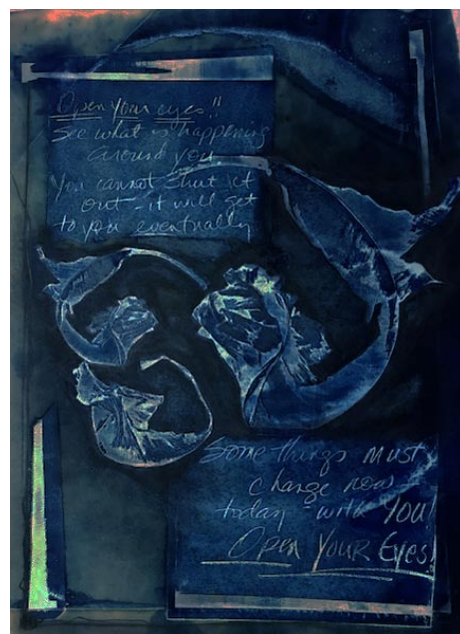 Open your eyes!!
See what is happening
around you
You cannot shut it
out - it will get
to you eventually
Some things must
change now -
today - with YOU
OPEN YOUR EYES!